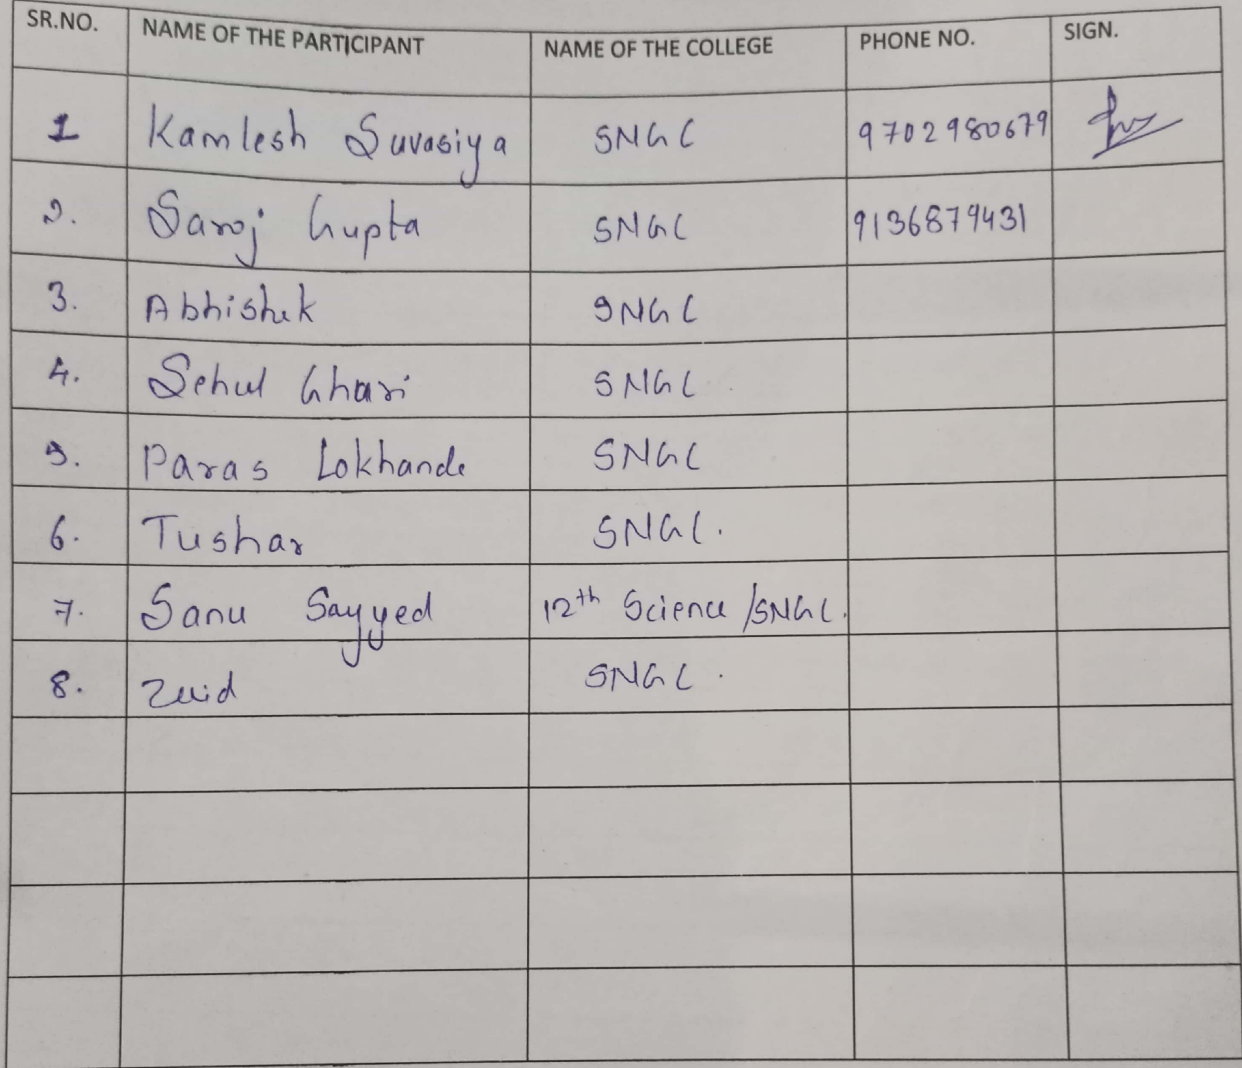 SR.NO. NAME OF THE PARTICIPANT NAME OF THE COLLEGE PHONE NO. SIGN.
1 Kamlesh Suvasiya SNGC 9702980679
2. Saroj Gupta SNGC 9136879431
3. Abhishek SNGC
4. Sehul Ghari SNGC
5. Paras Lokhande SNGC
6. Tushar SNGC.
7. Sanu Sayyed 12th Science/SNGC.
8. Zuid SNGC.